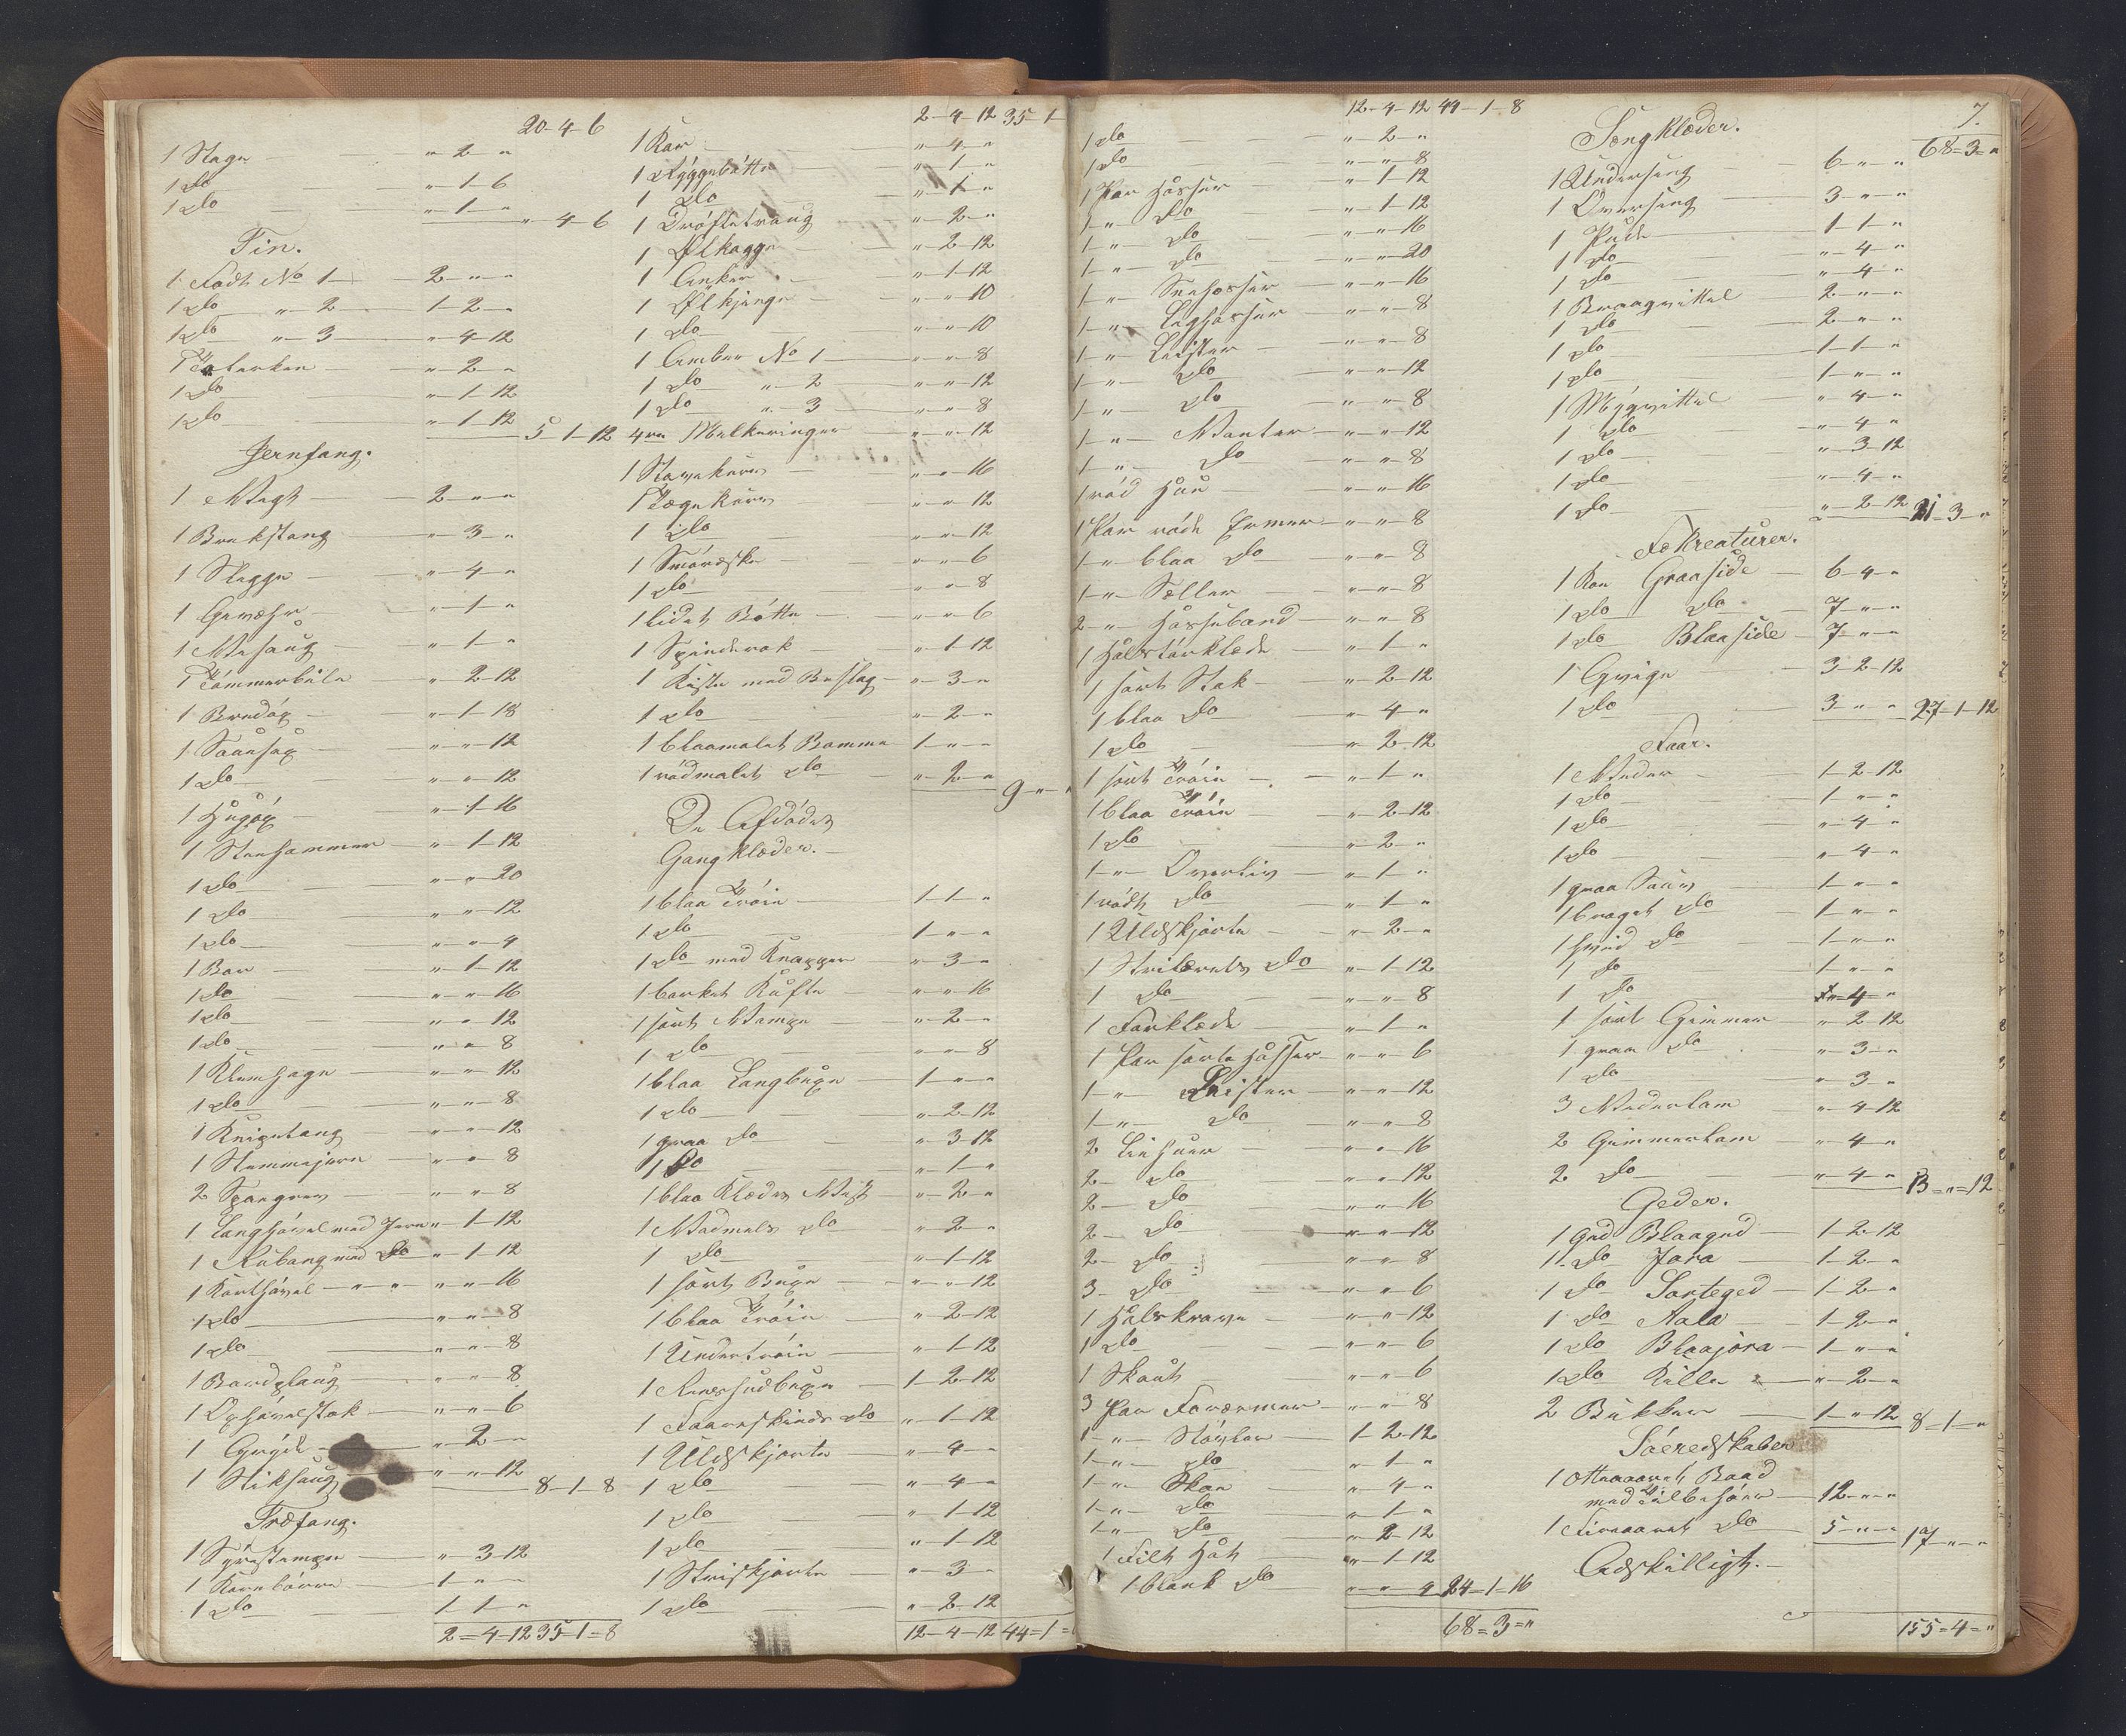 20-4-6
1 Stagn " 2 "
1 Do " 1-6
1 Do " 1 " " 4-6
Tin.
1 Fadt No 1 2 " "
1 Do " 2 1-2 "
1 Do " 3 " 4-12
1 Talerken " 2 "
1 Do " 1-12
1 Do " 1-12 5-1-12
Jernfang.
1 Vægt 2 " "
1 Brækstang " 3 "
1 Slegge " 4 "
1 Gevæhr " 1 "
1 " 1 "
1 Tømmerbile " 2-12
1 Bredøx " 1-18
1 " " 12
1 Do " " 12
1 Hugøx " 1-16
1 Steenhammer " 1-12
1 Do " " 20
1 Do " " 12
1 Do " " 4
1 Bor " 1-12
1 Do " " 16
1 Do " " 12
1 Do " " 8
1 Klemhage " " 12
1 Do " " 8
1 Knipetang " " 12
1 Stemmejern " " 8
2 " " 8
1 Langhøvel med Jern " 1-12
1 Rubang med Do " 1-12
1 Korthøvel " " " " 16
1 Do " " 8
1 Do " " 8
1 Bordplaug " " 8
1 Ophøvelstok " " 6
1 " 2 "
1 Stiksaug " " 12 8-1-8
Træfang.
1 Syrestampe " 3-12
1 Kornbørre 1 " "
1 Do 1-1 "
2-4-12 35-1-8
2-4-12 35-1-
1 Kar " 4 "
1 Ryggebøtte " 1 "
1 Do " 1 "
1 Drøftetraug " 2 "
1 Ølkagge " 2-12
1 Anker " 1-12
1 Ølkjenge " " 10
1 Do " " 10
1 Ambar No 1 " " 8
1 Do " 2 " " 12
1 Do " 3 " " 8
4re Melkeringer " " 12
1 Stavekurv " " 16
1 Tægekurv " " 12
1 Do " " 12
1 Smøræske " " 6
1 Do " " 8
1 lidet Bøtte " " 6
1 Spinderok " 1-12
1 Kiste med Beslag " 3 "
1 Do " 2 "
1 blaamalet Bomme 1 " "
1 rødmalet Do " 2 " 9 "
De Afdødes
Gangklæder.
1 blaa Trøie 1-1 "
1 Do 1 " "
1 Do med Knapper " 3 "
1 barket Kufte " " 16
1 sort Vampe " 2 "
1 Do " " 8
1 blaa Langbuxe 1 " "
1 Do " 2-12
1 graa Do " 3-12
1 Do " 1 "
1 blaa Klædes Vest " 2 "
1 Vadmels Do " 2 "
1 Do " 1-12
1 sort Buxe " " 12
1 blaa Trøie " 2-12
1 Undertrøie " 1-12
1 1-2-12
1 Faareskinds Do " 1-12
1 Uldskjorte " 4 "
1 Do " 4 "
1 Do " 1-12
1 Do " 1-12
1 Striskjorte " 3 "
1 Do " 2-12
12-4-12 44-1-
12-4-12 44-1-8
1 Do " 2 "
1 Do " " 8
1 Par Hosser " 1-12
1 " Do " 1-12
1 " Do " " 16
1 " Do " " 20
1 " Snehosser " " 16
1 " Læghosser " " 8
1 " Leister " " 8
1 " Do " " 12
1 " Do " " 8
1 " Vanter " " 12
1 " Do " " 8
1 rød Hue " " 16
1 Par røde Ermer " " 8
1 " blaa Do " " 8
1 " Seller " " 8
2 " Hosseband " " 8
1 Halstørklæde " 1 "
1 sort Stak " 2-12
1 blaa Do " 4 "
1 Do " 2-12
1 sort Trøie " 1 "
1 blaa Trøie " 2-12
1 Do " 2 "
1 " Overliv " 1 "
1 rødt Do " 1 "
1 Uldskjorte " 2 "
1 Strilærets Do " 1-12
1 Do " " 8
1 Forklæde " 1 "
1 Par sorte Hosser " " 6
1 " Leister " " 12
1 " Do " " 8
2 Linhuer " " 16
2 Do " " 12
2 Do " " 16
2 Do " " 12
2 Do " " 8
3 Do " " 6
1 Halskrave " " 12
1 Do " " 6
1 Skaut " " 6
3 Par Forærmer " " 8
1 " Støvler 1-2-12
1 " Do " 1 "
1 " Skoe " 4 "
1 " Do " 1 "
1 " Do " 2-12
1 Filt Hat " 1-12
1 blank Do " " 4 24-1-16
68-3-"
7.
Sengklæder.
68-3-"
1 Underseng 6 " "
1 Overseng 3 " "
1 Pude 1-1 "
1 Do " 4 "
1 Do " 4 "
1 Braagvittel 2 " "
1 Do 2 " "
1 Do 1-1 "
1 Do 1 " "
1 Mygvittel " 4 "
1 Do " 4 "
1 Do " 3-12
1 Do " 4 "
1 Do " 2-12 21-3-"
Fækreaturer.
1 Koe Graaside 6-4 "
1 Do Do 7 " "
1 Do Blaaside 7 " "
1 Qvige 3-2-12
1 Do 3 " " 27-1-12
Faar.
1 Veder 1-2-12
1 Do 1 " "
1 Do " 4 "
1 Do " 4 "
1 graa Sauv 1 " "
1 braget Do 1 " "
1 hvid Do 1 " "
1 Do 1 " "
1 Do " 4 "
1 sort Gimmer " 2-12
1 graa Do " 3 "
1 Do " 3 "
3 Vederlam " 4-12
2 Gimmerlam " 4 "
2 Do " 4 " 13-"-12
Geder.
1 Ged Blaaged 1-2-12
1 Do Jora 1-2 "
1 Do Sorteged 1-2 "
1 Do Kala 1-2 "
1 Do Blaajora 1 " "
1 Do Kille " 2 "
2 Bukker 1 " 12 8-1-"
Søeredskaber
1 Ottreaaret Baad
med Tilbehøer 12 " "
1 Fireaaret Do 5 " " 17 " "
Adskilligt.
155-4-"